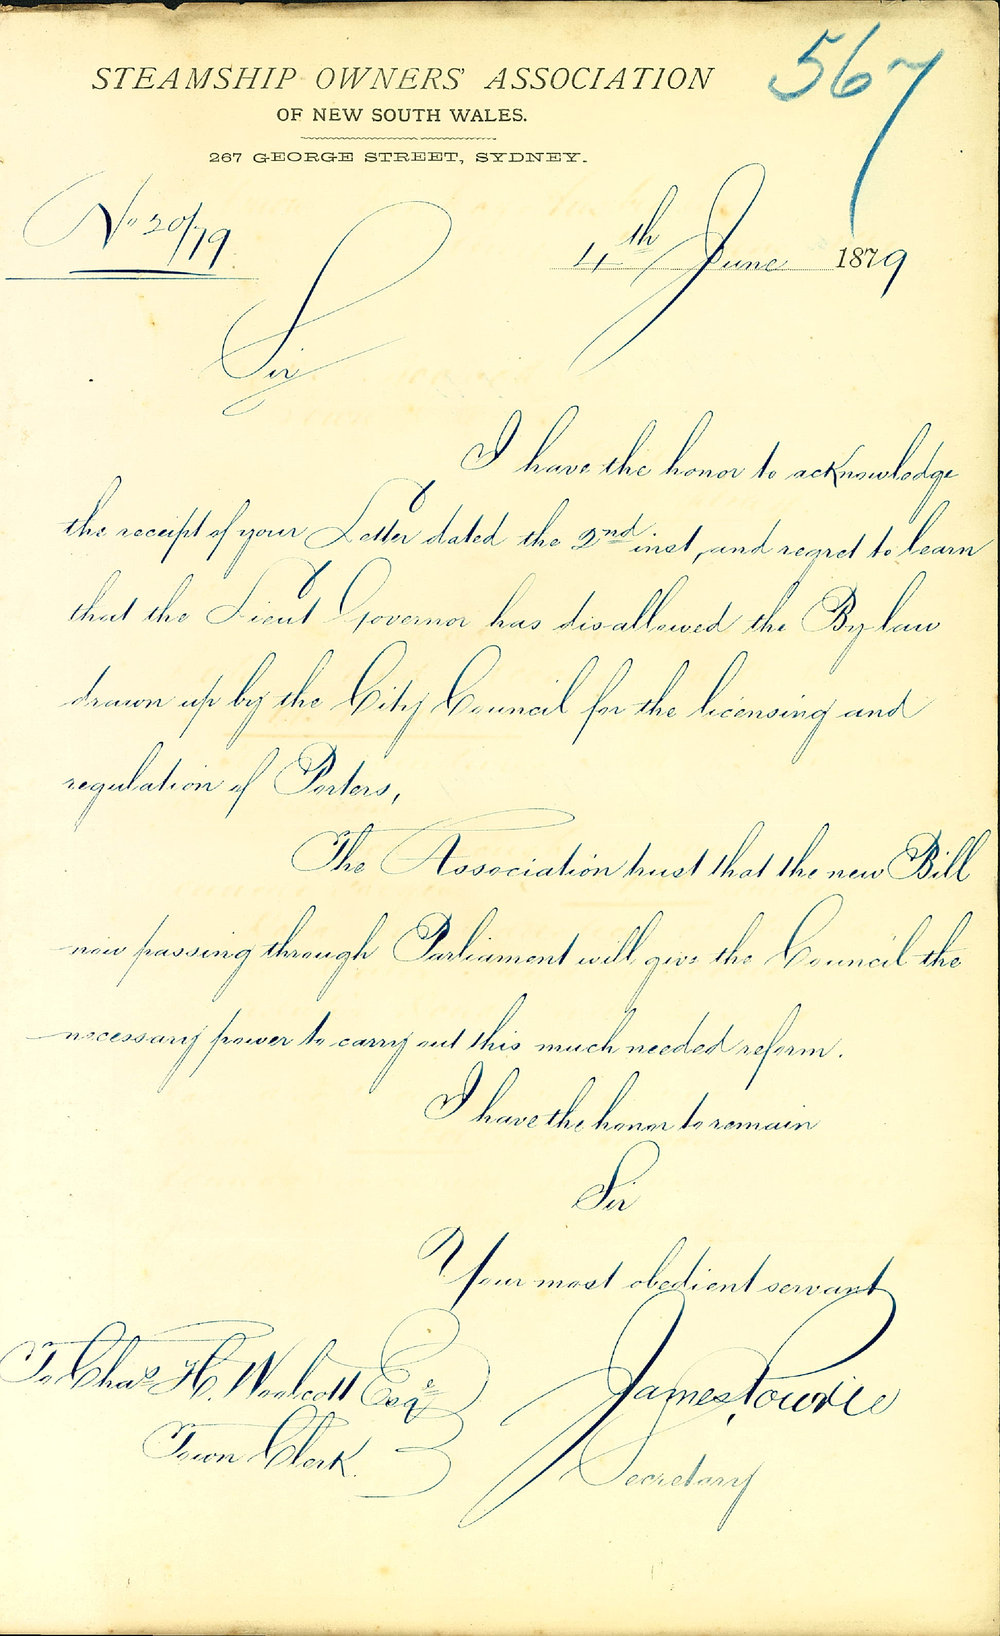 567
STEAMSHIP OWNERS' ASSOCIATION
OF NEW SOUTH WALES.
267 GEORGE STREET, SYDNEY.
No 20/79
4th June 1879
Sir
I have the honor to acknowledge
the receipt of your Letter dated the 2nd inst, and regret to learn
that the Lieut Governor has disallowed the By law
drawn up by the City Council for the licensing and
regulation of Porters,
The Association trust that the new Bill
now passing through Parliament will give the Council the
necessary power to carry out this much needed reform.
I have the honor to remain
Sir
Your most obedient servant
James Powrie
Secretary
To Chas H. Woolcott Esqre
Town Clerk.